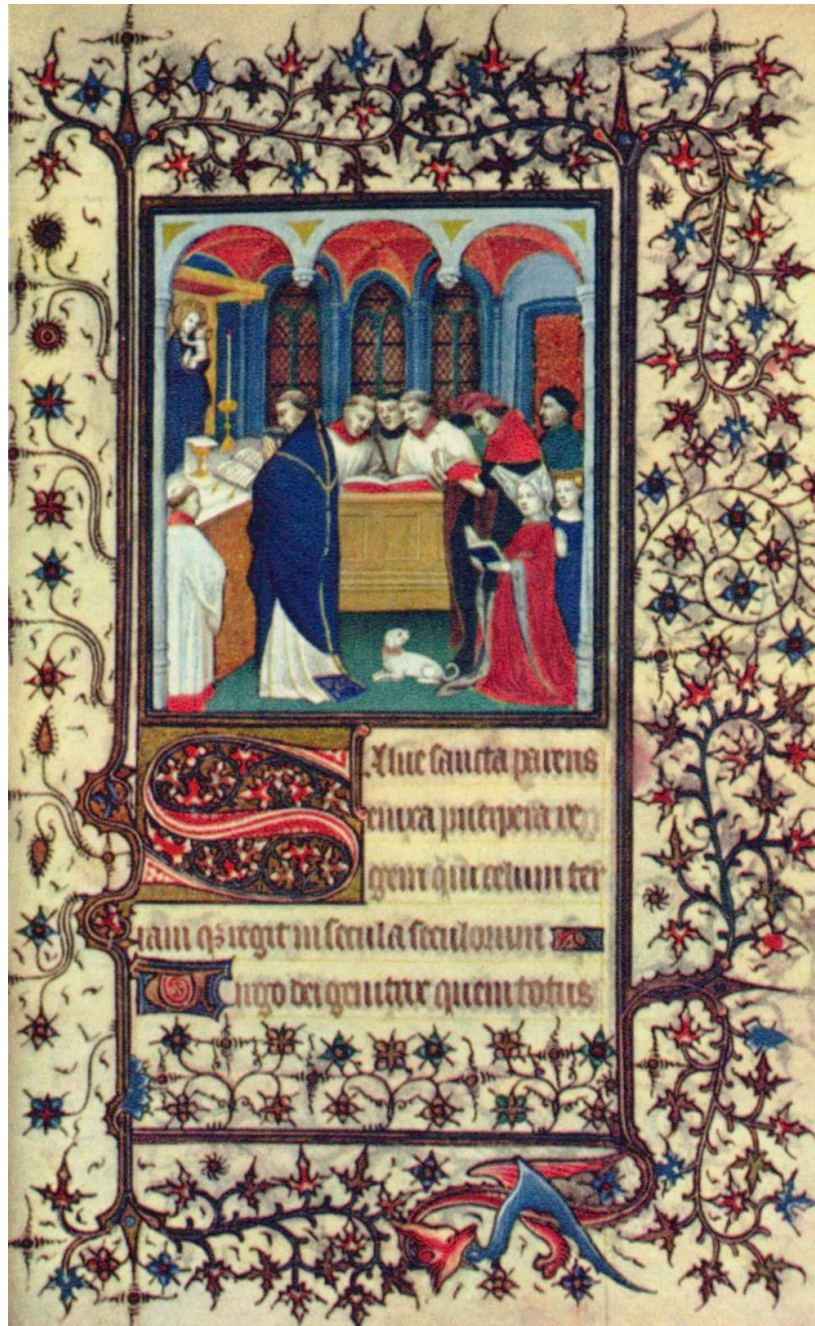 Salue sancta parens
enixa puerpera re
gem qui celum ter
ram q₃ regit in secula seculorum
Uirgo dei genitrix quem totus